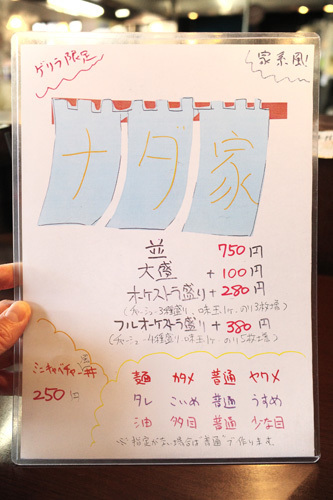 ゲリラ限定
家系風!
ナダ家
並 750円
大盛 +100円
オーケストラ盛り +280円
(チャーシュー3種盛り、味玉1ヶ、のり3枚増)
フルオーケストラ盛り +380円
(チャーシュー4種盛り 味玉1ヶ、のり5枚増)
ミニキャベチャー丼
250円
麺 カタメ 普通 ヤワメ
タレ こいめ 普通 うすめ
油 多め 普通 少な目
※指定がない場合は"普通"で作ります